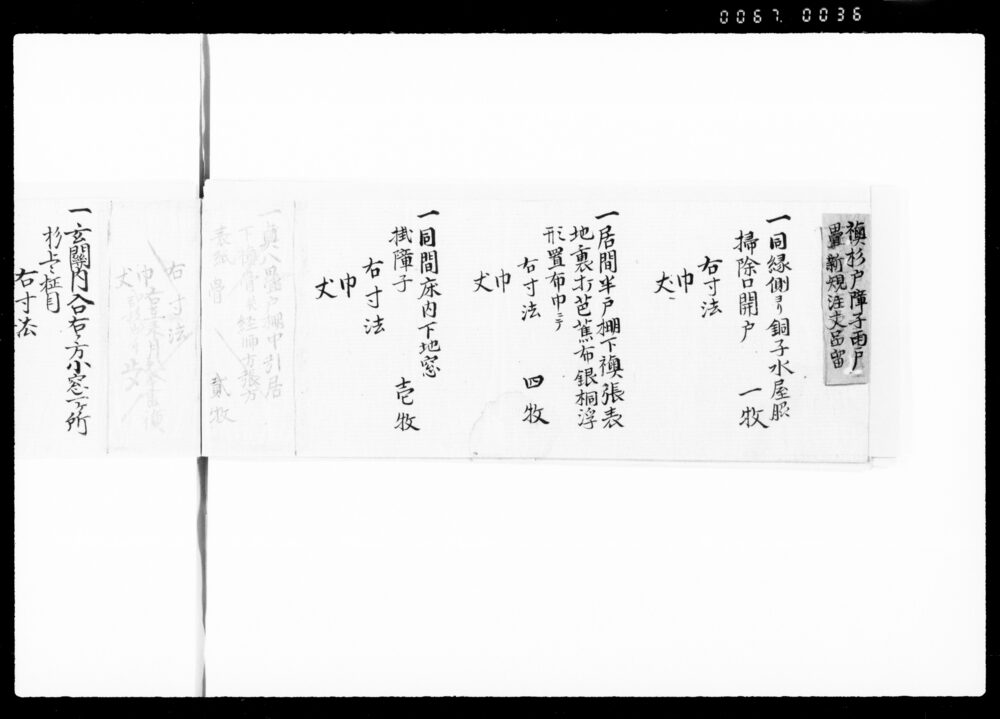 0067. 0036
襖杉戸障子雨戸
畳新規注文呂留
一同縁側ヨリ銅子水屋脇
掃除口開戸 一枚
右寸法
巾
丈
一居間半戸棚下襖張表
地裏打芭蕉布銀桐浮
形置布巾ニテ 四枚
右寸法
巾
丈
一同間床内下地窓
掛障子 壱枚
右寸法
巾
丈
下襖骨
表紙 骨 貳枚
右寸法
巾
丈
一玄関内入合右ノ方小窓一ヶ所
杉上々柾目
右寸法